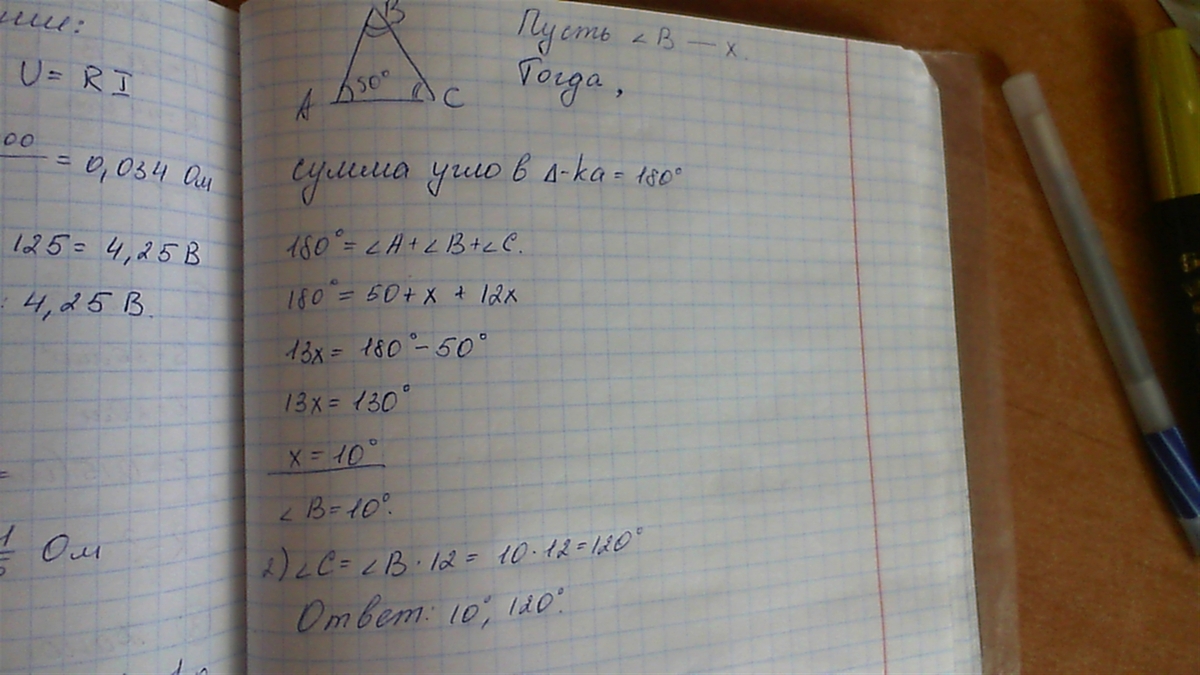 U = R I
= 0,034 Ом
125 = 4,25 В
: 4,25 В.
=
Ом
B
50°
A
C
Пусть ∠B — x.
Тогда,
сумма углов Δ-ka = 180°
180° = ∠A + ∠B + ∠C.
180° = 50 + x + 12x
13x = 180° - 50°
13x = 130°
x = 10°
∠B = 10°.
2) ∠C = ∠B · 12 = 10 · 12 = 120°
Ответ: 10°, 120°.